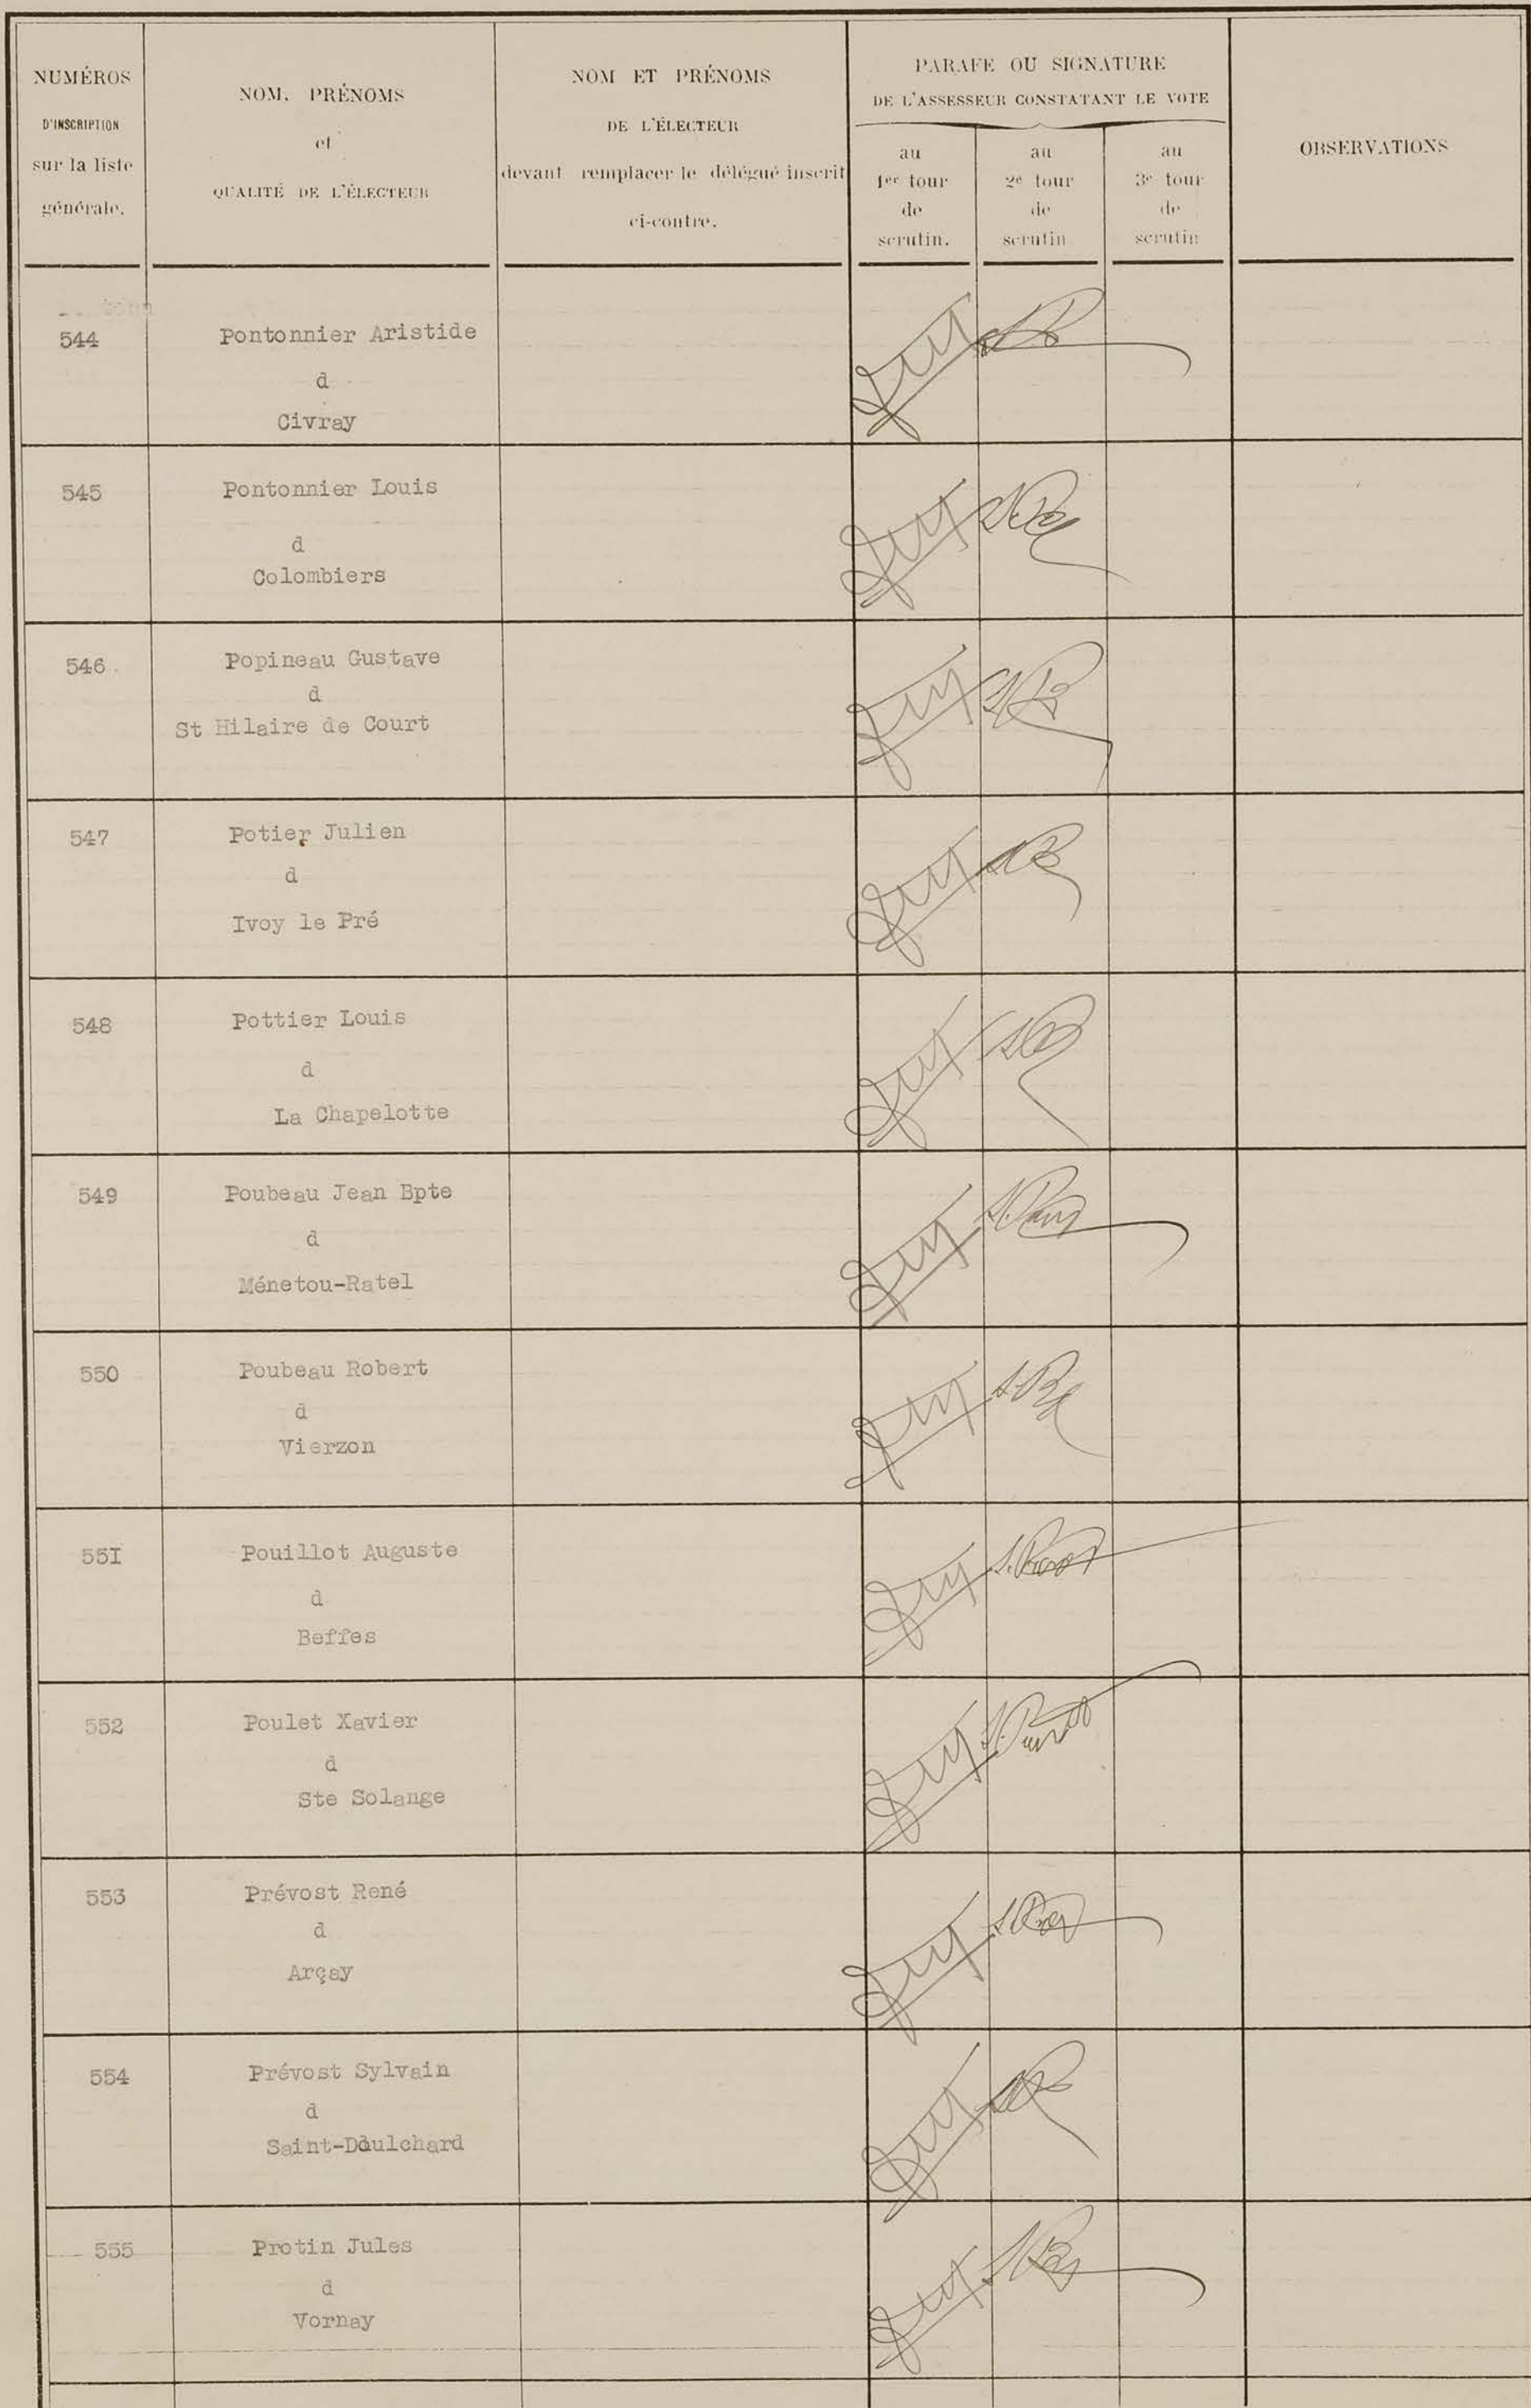 NUMÉROS
D'INSCRIPTION
sur la liste
générale.
NOM, PRÉNOMS
et
QUALITÉ DE L'ÉLECTEUR
NOM ET PRÉNOMS
DE L'ÉLECTEUR
devant remplacer le délégué inscrit
ci-contre.
PARAFE OU SIGNATURE
DE L'ASSESSEUR CONSTATANT LE VOTE
au
1er tour
de
scrutin.
au
2e tour
de
scrutin
au
3e tour
de
scrutin
OBSERVATIONS
544
Pontonnier Aristide
d
Civray
545
Pontonnier Louis
d
Colombiers
546
Popineau Gustave
d
St Hilaire de Court
547
Potier Julien
d
Ivoy le Pré
548
Pottier Louis
d
La Chapelotte
549
Poubeau Jean Bpte
d
Ménetou-Ratel
550
Poubeau Robert
d
Vierzon
55I
Pouillot Auguste
d
Beffes
552
Poulet Xavier
d
Ste Solange
553
Prévost René
d
Arçay
554
Prévost Sylvain
d
Saint-Doulchard
555
Protin Jules
d
Vornay